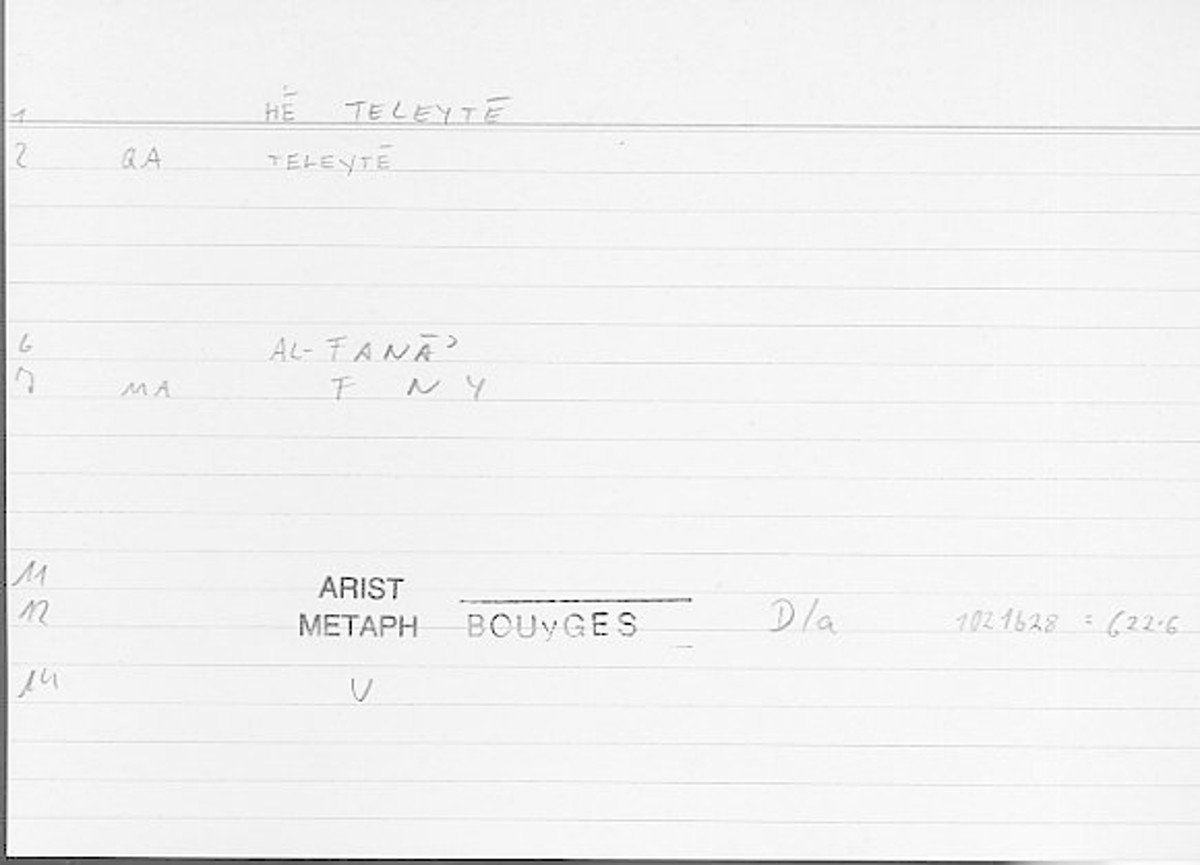 1 HĒ TELEYTĒ
2 QA TELEYTĒ
6 AL-FANĀʾ
7 MA F N Y
11 ARIST
12 METAPH BOUYGES D/a 1021b28 = 622.6
14 V